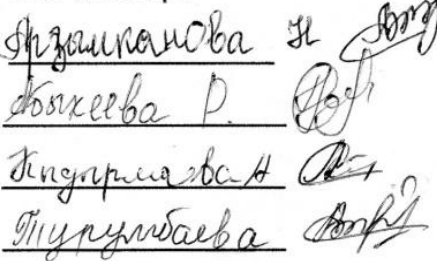 Арзымканова Н
Абыкеева Р.
Кыдырмаева А
Турумбаева